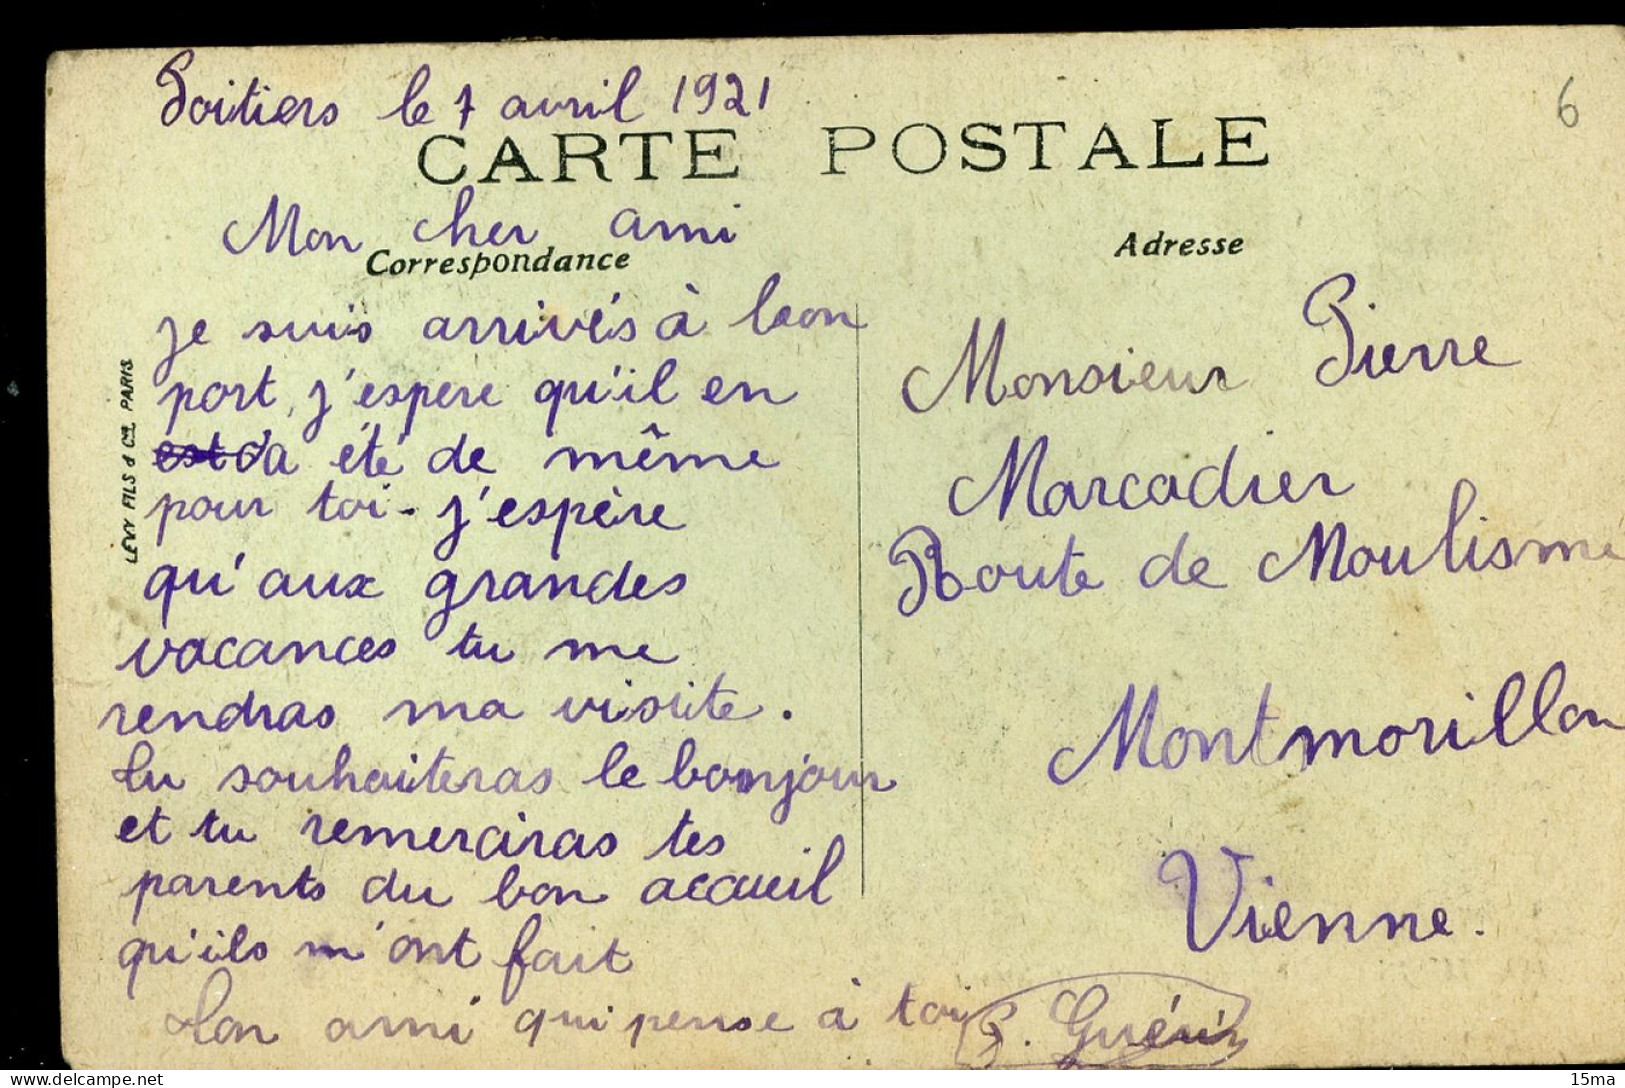 Poitiers le 7 avril 1921
6
CARTE POSTALE
Mon cher ami
Correspondance
je suis arrivés à bon
port, j'espere qu'il en
est a été de même
pour toi - j'espère
qu'aux grandes
vacances tu me
rendras ma visite.
tu souhaiteras le bonjour
et tu remerciras tes
parents du bon accueil
qu'ils m'ont fait
ton ami qui pense à toi
Guérin
LEVY FILS & Cie PARIS
Adresse
Monsieur Pierre
Marcadier
Route de Moulisme
Montmorillon
Vienne.
15ma